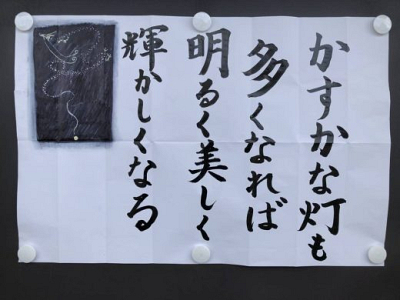 かすかな灯も
多くなれば
明るく美しく
輝かしくなる